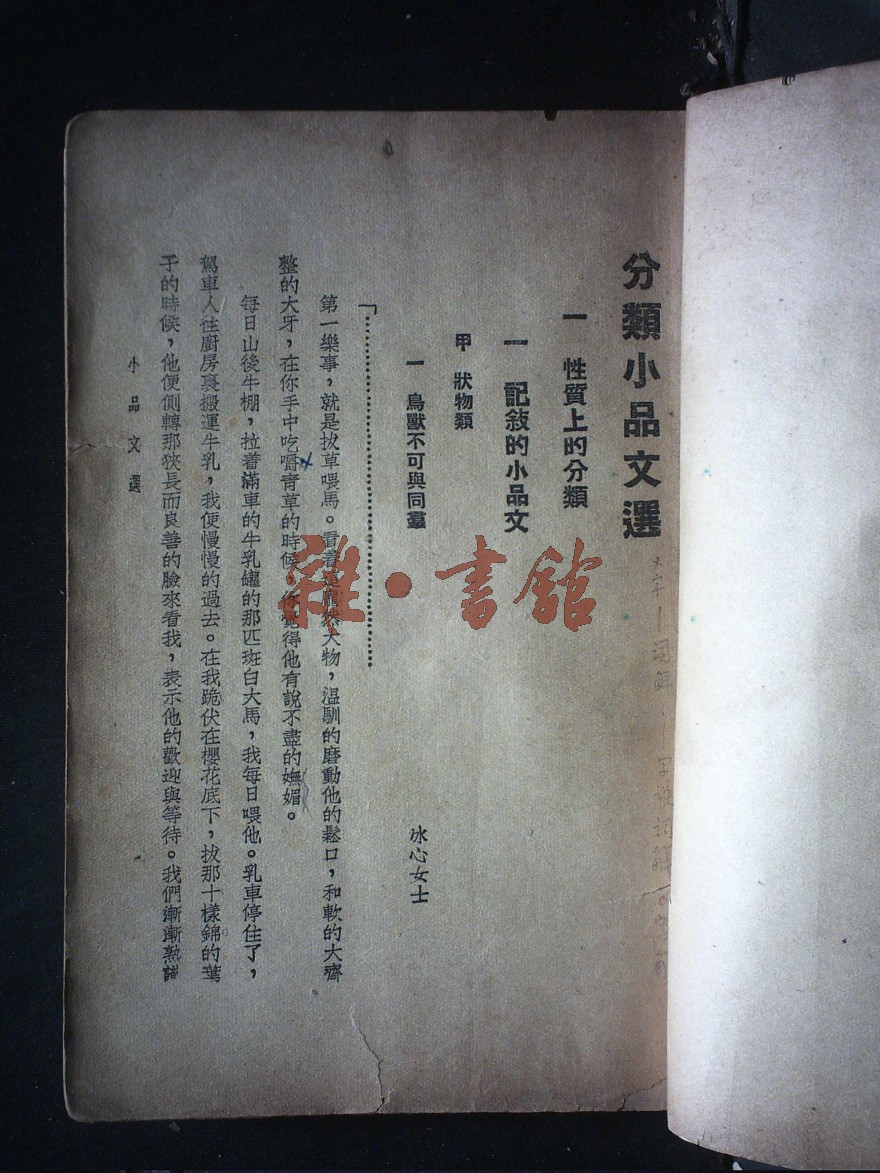 分類小品文選
一 性質上的分類
一 記敍的小品文
甲 狀物類
一 鳥獸不可與同羣
冰心女士
「…………………………………………
第一樂事，就是拔草喂馬。看着這龐然大物，温馴的磨動他的鬆口，和軟的大齊
整的大牙，在你手中吃嚼青草的時候，你覺得他有說不盡的嫵媚。
每日山後牛棚，拉着滿車的牛乳罐的那匹斑白大馬，我每日喂他。乳車停住了，
駕車人往廚房裏搬運牛乳，我便慢慢的過去。在我跪伏在櫻花底下，拔那十樣錦的葉
子的時候，他便側轉那狹長而良善的臉來看我，表示他的歡迎與等待。我們漸漸熟識
小品文選
雜·書館